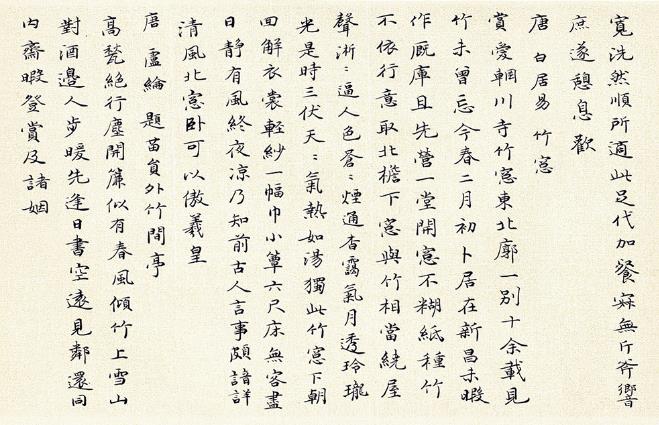 寬洗然順所適此足代加餐寂無斤斧響
庶遂憩息歡
唐 白居易 竹窓
賞愛輞川寺竹窓東北廓一別十余載見
竹未曾忘今春二月初卜居在新昌未暇
作厩庫且先營一堂開窓不糊紙種竹
不依行意取北檐下窓與竹相當繞屋
聲淅〻逼人色蒼〻煙通杳靄氣月透玲瓏
光是時三伏天〻氣熱如湯獨此竹窓下朝
回解衣裳輕紗一幅巾小簟六尺床無客盡
日静有風終夜凉乃知前古人言事頗諳詳
清風北窓卧可以傲羲皇
唐 盧綸 題苗員外竹間亭
高甃絶行塵開簾似有春風傾竹上雪山
對酒邊人步暖先逢日書空遠見鄰還同
内齋暇登賞及諸姻